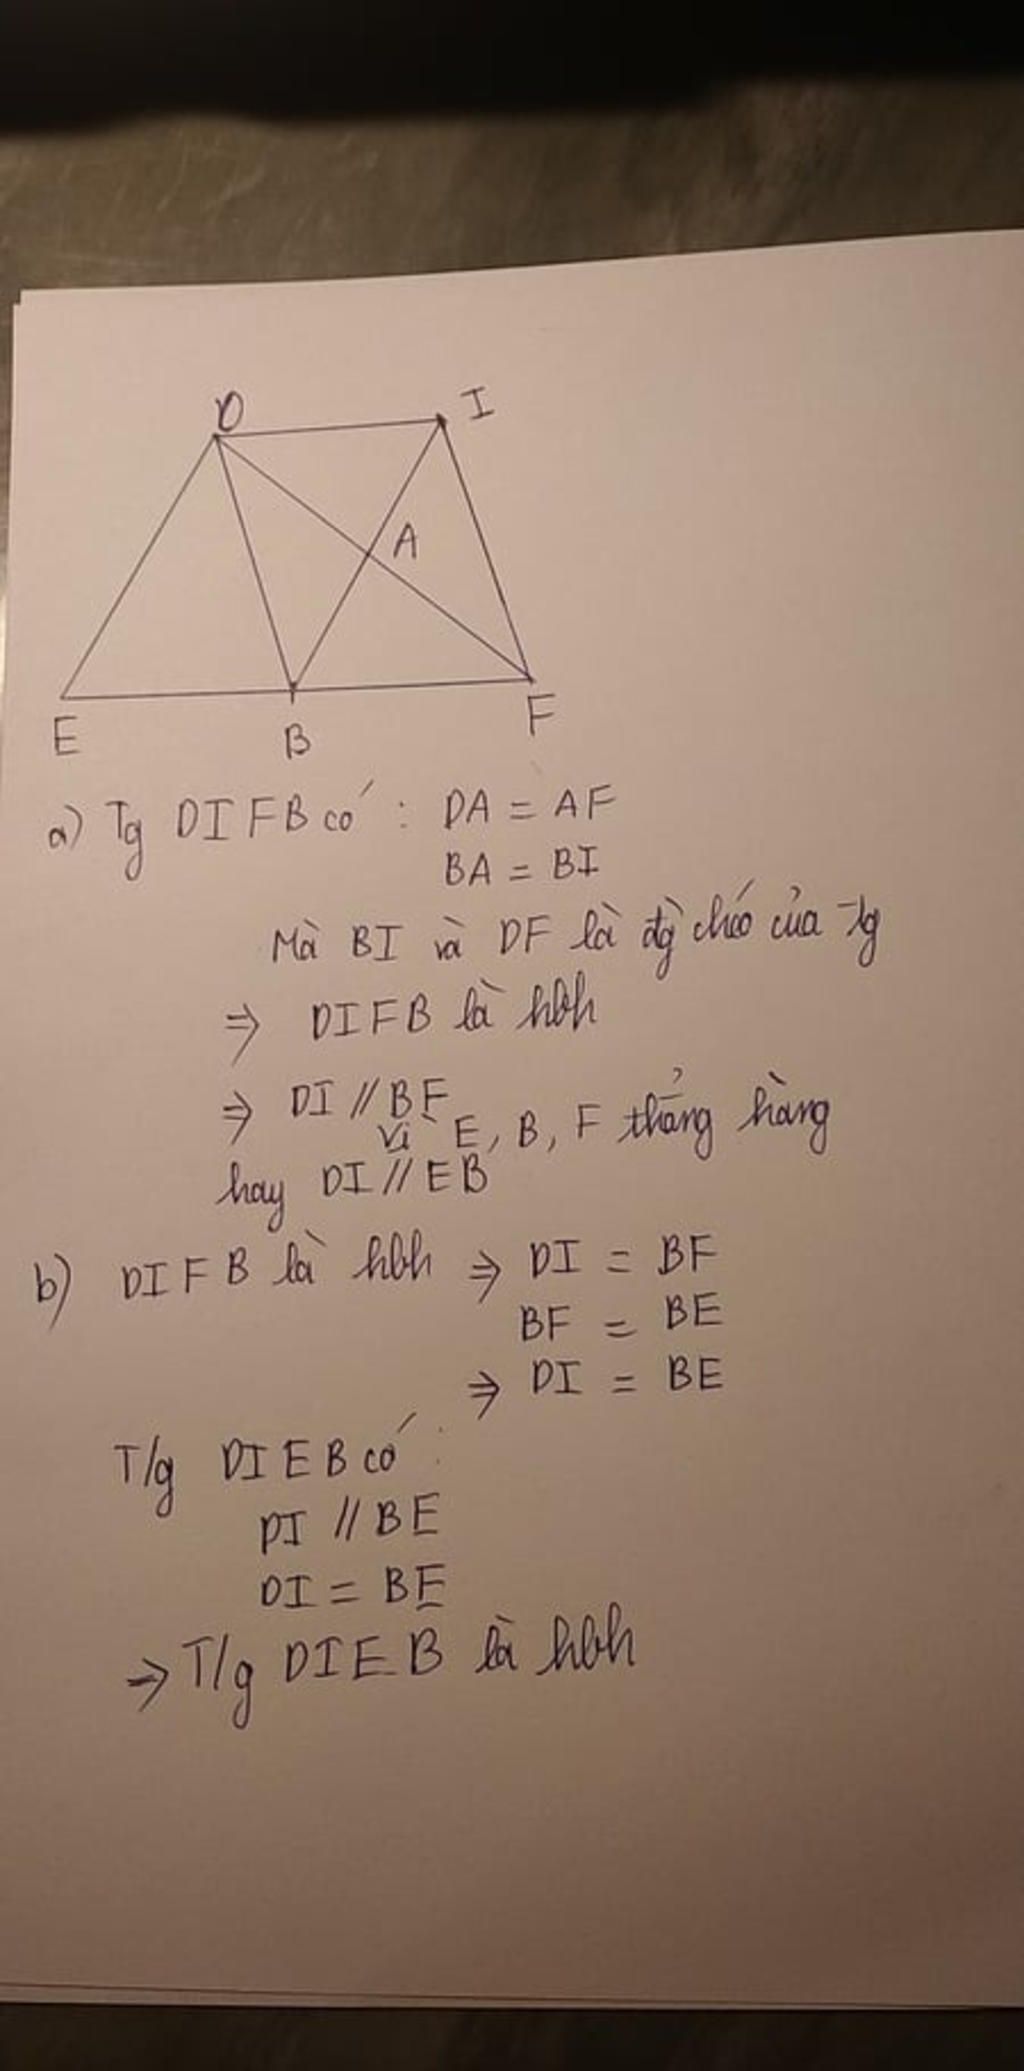 D
I
A
E
B
F
a) Tg DIFB có : DA = AF
BA = BI
Mà BI và DF là đg chéo của tg
⇒ DIFB là hbh
⇒ DI // BF
Vì E, B, F thẳng hàng
hay DI // EB
b) DIFB là hbh ⇒ DI = BF
BF = BE
⇒ DI = BE
T/g DIEB có :
DI // BE
DI = BE
⇒ T/g DIEB là hbh